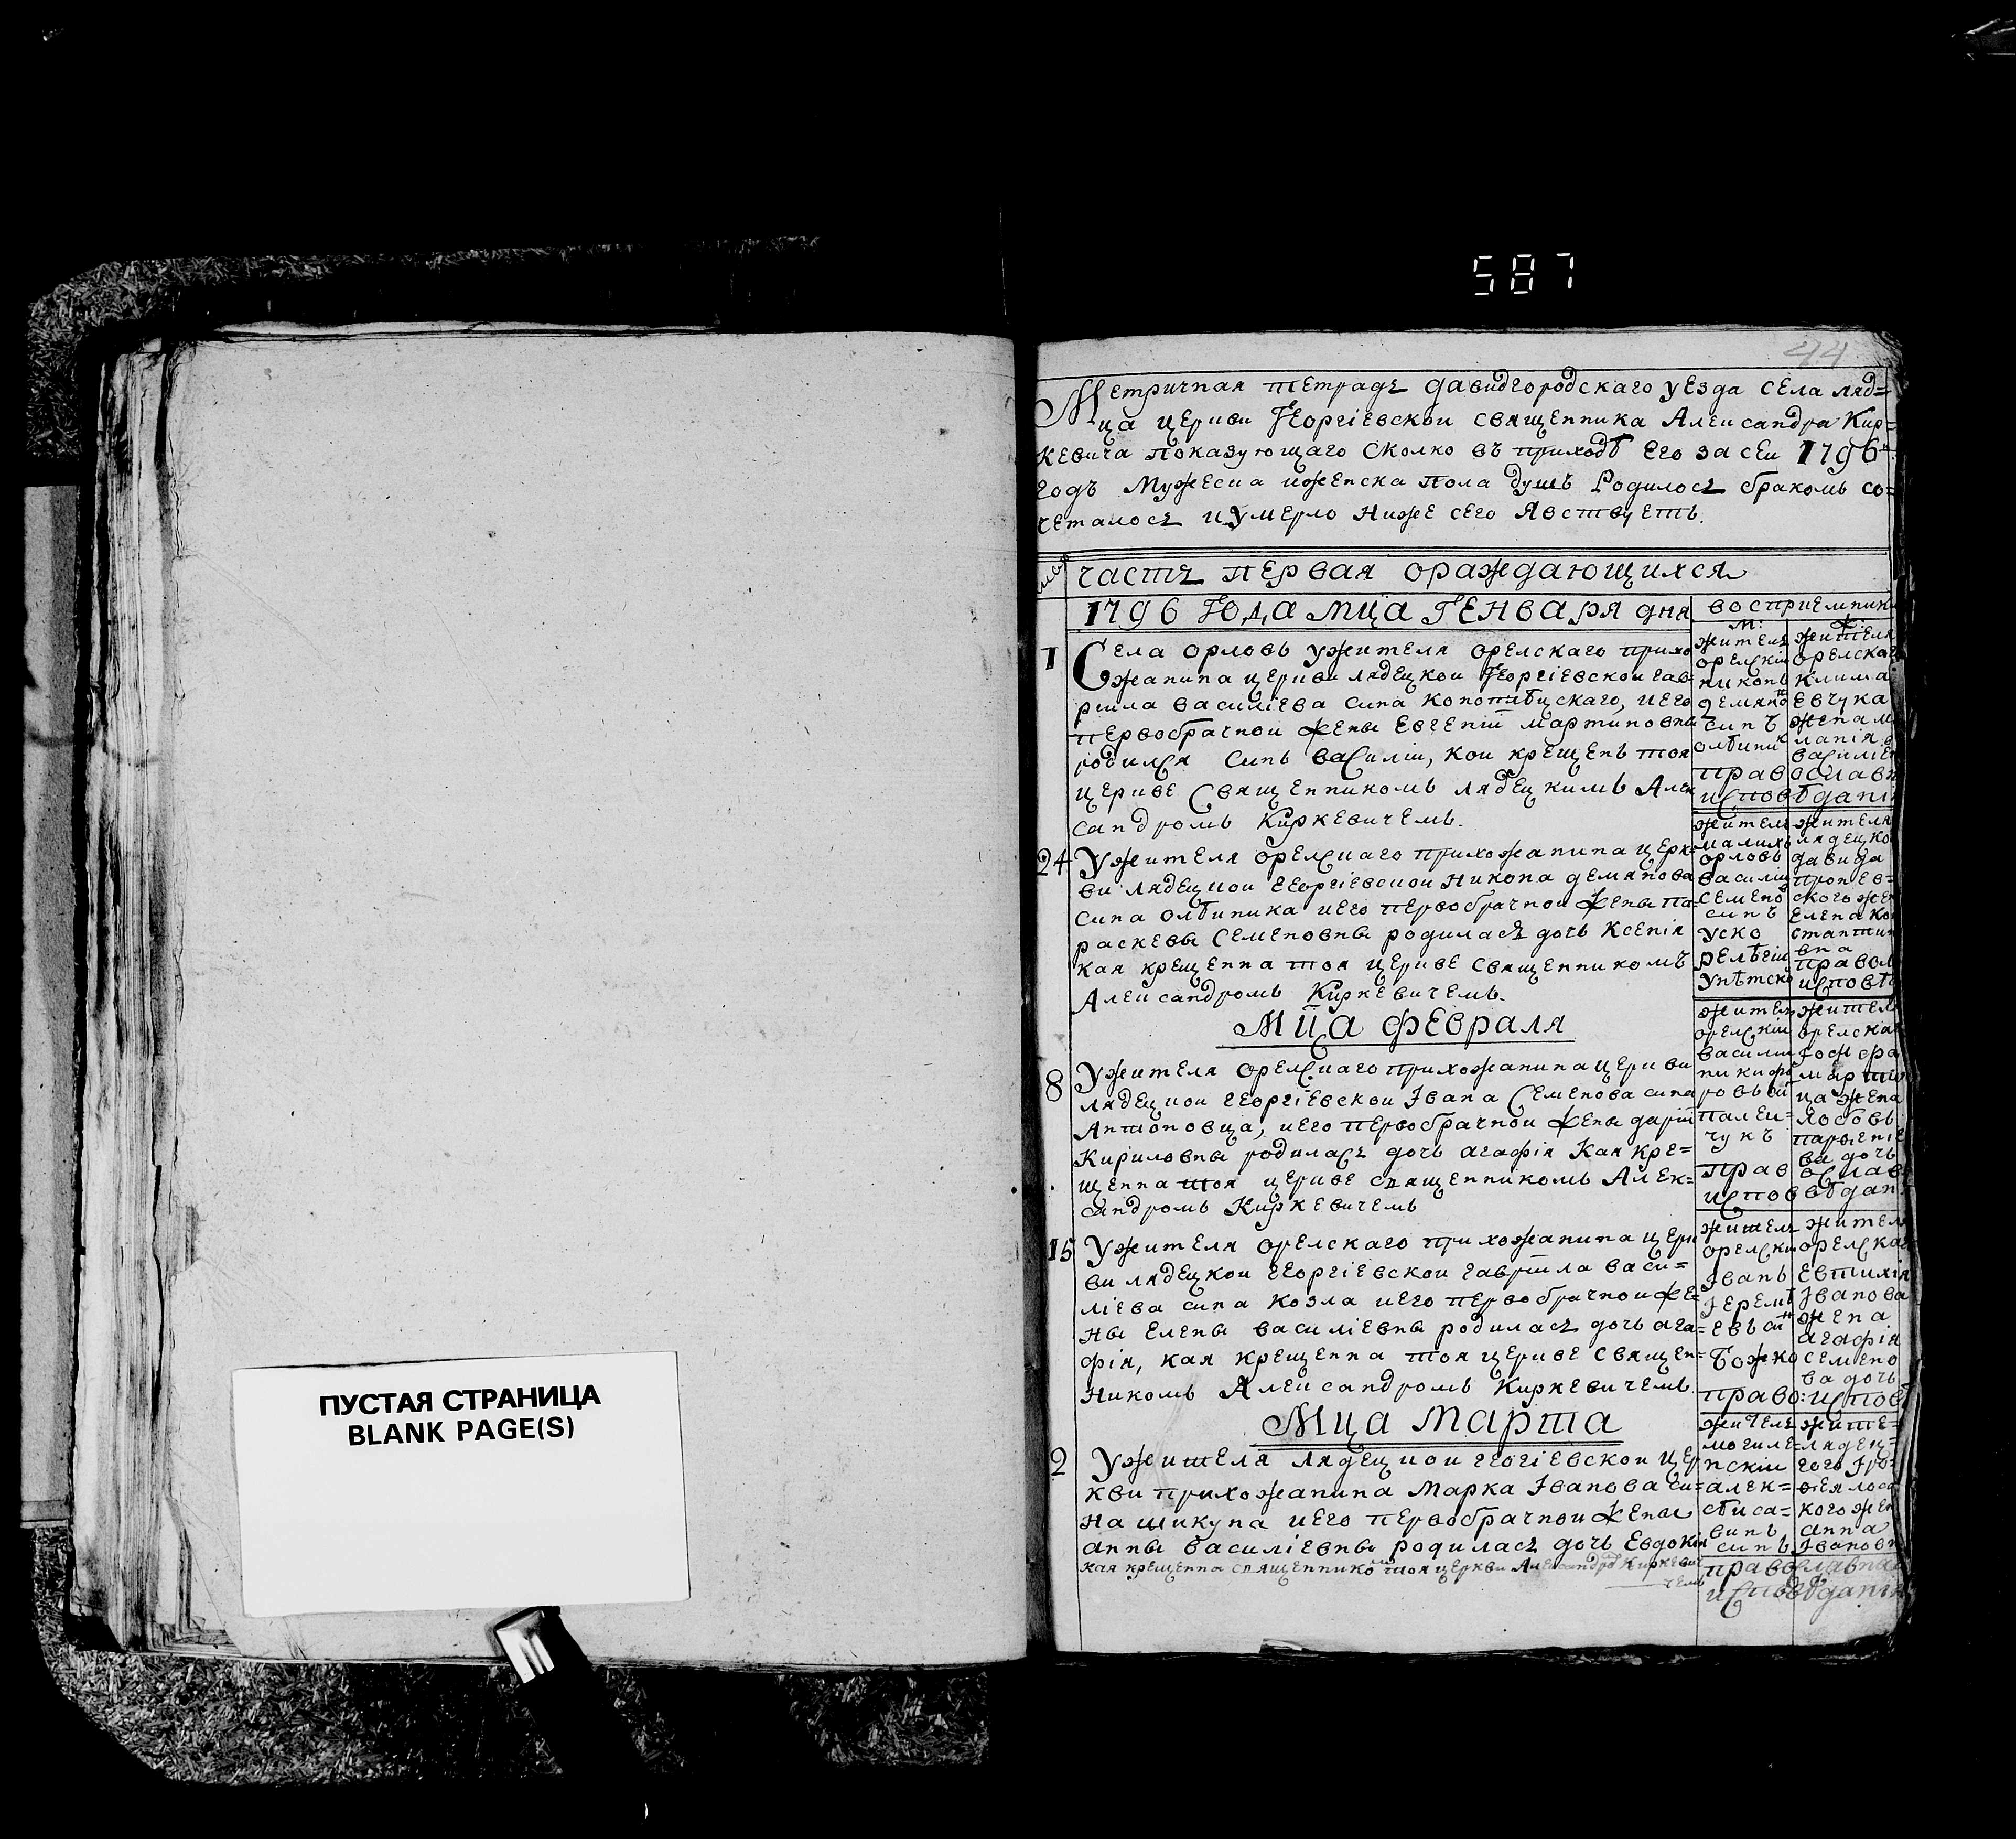 587
44
Метричная тетрадь давидгородскаго уезда села ляд=
ца церкви Георгіевской священника Александра Кир=
кевича показующаго сколко въ приходѣ его за сей 1796
годъ мужеска и женска пола душъ родилось бракомъ со=
четалось и умерло ниже сего явствуетъ.
часть первая о раждающихся
1796 года мца генваря дня
восприемники
м: ж:
1
Села орловъ у жителя орелскаго прихо
жанина церкви лядецкой Георгіевской гав
рыила василіева сина
первобрачной жены Евгеніи мартиновны
родился синъ василій, кой крещенъ тоя
церкве священникомъ лядецкимъ Алек
сандромъ Киркевичемъ.
жителя орелскій никонъ
жителя орелскаго клима евчука жена
василіе
православн
исповѣдани
24
У жителя орелскаго прихожанина церк
ви лядецкой георгіевской никона демянова
сина олѣпника и его первобрачной жены па=
раскевы семеновны родилась дочь ксенія
кая крещенна тоя церкве священникомъ
Александромъ Киркевичемъ.
житель орловъ василій семеновъ синъ
жителя лядецко давида жен елена
мца февраля
8
У жителя орелскаго прихожанина церкви
лядецкой георгіевской Івана Семенова сина
Антоновца, и его первобрачной жены даріи
Кириловны родилась дочь агафія кая кре=
щенна тоя церкве священникомъ Алек=
сандромъ Киркевичемъ
житель орелскій василій
палей=
чукъ
жителя орелска
жена
любовь
ва дочь
православ
исповѣдан
15
У жителя орелскаго прихожанина церк
ви лядецкой георгіевской гаврыила васи=
ліева сина козла и его первобрачной же=
ны елены василіевны родилась дочь ага=
фія, кая крещенна тоя церкве священ=
никомъ Александромъ Киркевичемъ.
житель
орелскі
Іванъ
Божко
жителя
орелска
евтихія
Іванова
жена
агафія
семено
ва дочь
право: исповѣ
мца марта
2
У жителя лядецкой георгіевской цер
кви прихожанина марка Іванова си=
на шикула и его первобрачной жены
анны василіевны родилась дочь евдокія
кая крещенна священникомъ тоя церкви Александромъ Киркеви
чемъ
житель
могиле=
нскій
алек=
сѣй са=
винъ
синъ
жите=
лядец=
кого жен
анна
Івановн
православна
исповѣдания
ПУСТАЯ СТРАНИЦА
BLANK PAGE(S)